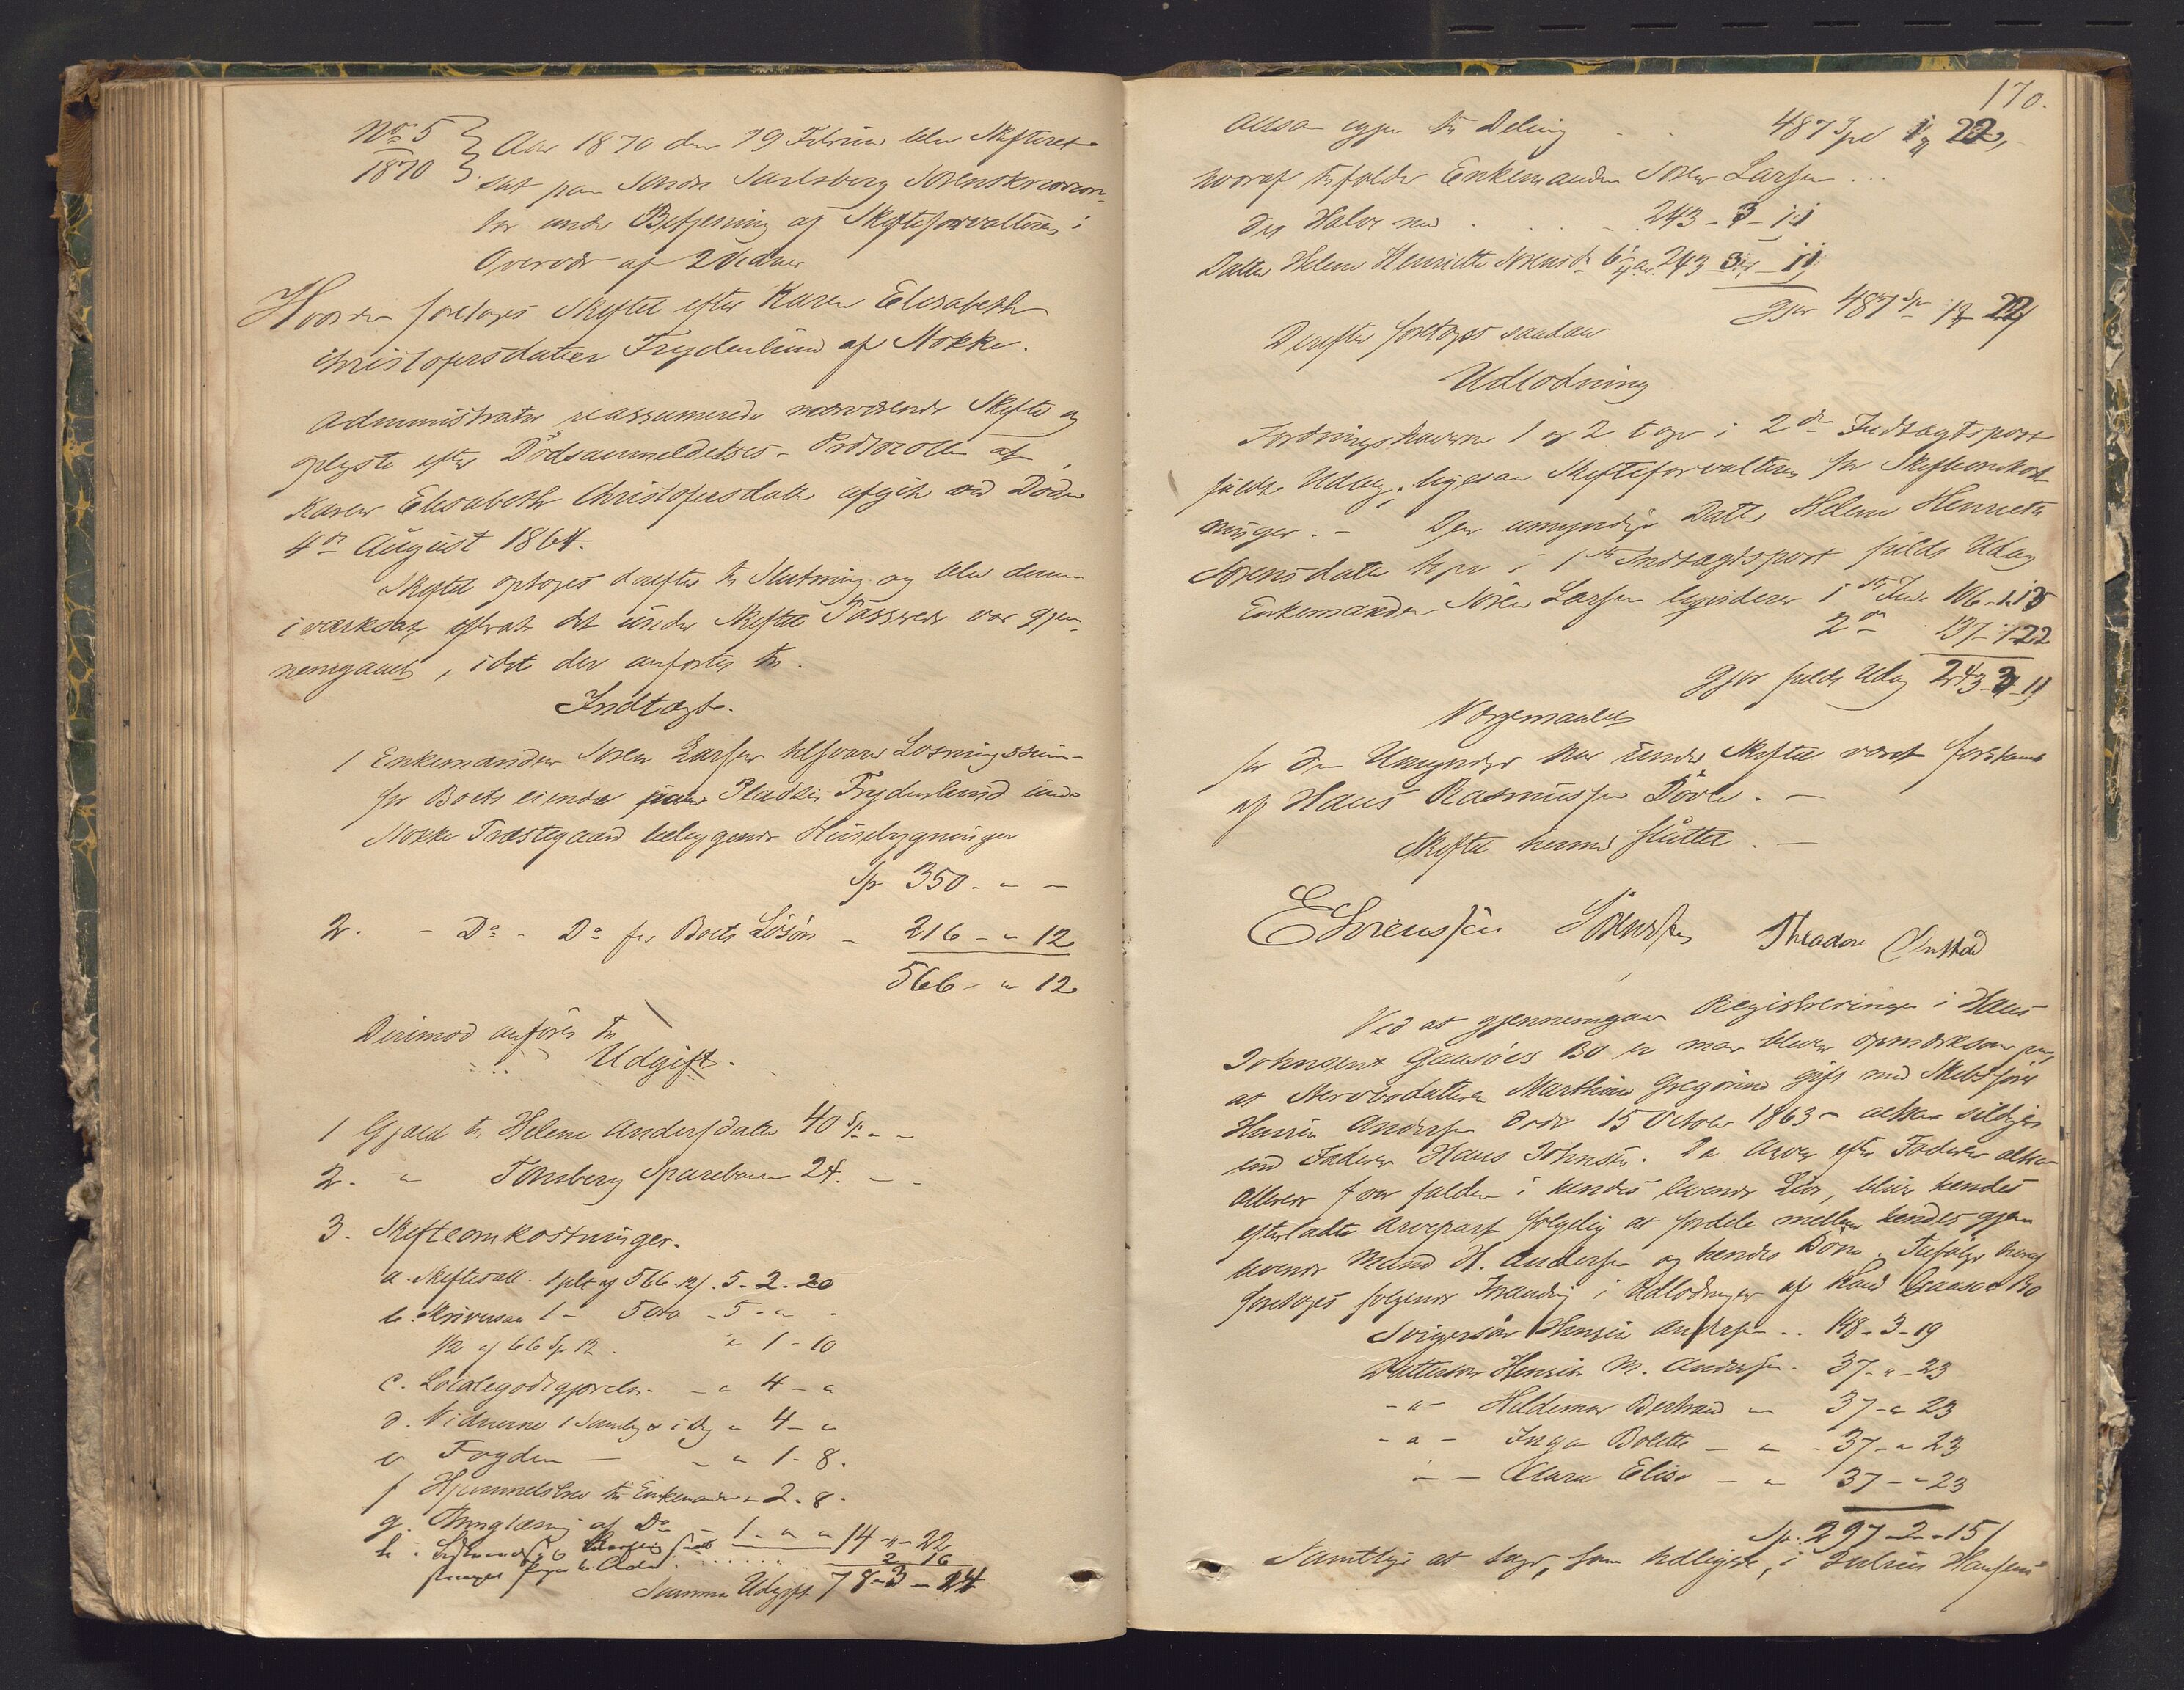 No 5
1870
Aar 1870 den 19 Februar blev Skifteret
sat paa Søndre Jarlsberg Sorenskriverkon-
tor under Betjening af Skifteforvalteren i
Overvær af 2 Vidner
Hvorda foretoges Skiftet efter Karen Elisabeth
Christofersdatter Frydenlund af Nøkke.
Administrator reassumerede nærværende Skifte og
oplyste efter Dødsanmeldelses-Protocollen at
Karen Elisabeth Christofersdatter afgik ved Døden
4de August 1864.
Skiftet optoges derefter til Slutning og blev denne
iværksat efterat det under Skiftet Passerede var gjen-
nemgaaet, idet der anførtes til
Indtægt.
1 Enkemanden Søren Larsen tilsvarer Løsningssum
for Boets eiende paa Pladsen Frydenlund under
Nøkke Præstegaard beliggende Huusebygninger
Sp 350 - " -
2. - Do - Do for Boets Løsøre - 216 - " 12
566 - " 12
Derimod anføres til
Udgift.
1 Gjæld til Helene Andersdatter 40 Sp. " -
2. " Tønsberg Sparebank 24. - -
3. Skifteomkostninger.
a. Skiftesall. 1 pCt af 566 Sp. 5. 2. 20
b. Skriversal 1 - 500 - 5 - " -
1/2 af 66 Sp 12. " 1 - 10
c. Localegodtgjørelse - " 4 - "
d. Vidnerne 1 Samling i Dag " 4 - "
e Fogden - - " 1 - 8.
f Hjemmelsbrev til Enkemanden " 2. 8.
g. Thinglæsning af Do - 1 - " " 14 - " - 22
h. 2 16
Summa Udgift 78 - 3 - 24
170.
altsaa igjen til Deling . . 487 Spd 1 22,
hvoraf tilfalder Enkemanden Søren Larsen ...
det Halve med . . . - 243 - 3 - 11
Datter Helene Henriette Sørensdr 6 1/4 Aar 243 - 3 - 11
gjør 487 Sp 1 22
Derefter foretoges saadan
Udlodning
Fordringshaverne 1 og 2 tager i 2den Indtægtspost
fuldt Udlæg, ligesaa Skifteforvalteren for Skifteomkost
ninger. - Den umyndige Datter Helene Henriette
Sørensdatter tager i 1ste Indtægtspost fuldt Udlæg
Enkemanden Søren Larsen ligeledes i 1ste Indt. 106 - 1. 13
2den 137 - 1 22
gjør fuldt Udlæg 243 - 3 - 11
Værgemaalet
for den Umyndige har under Skiftet været forestaaet
af Hans Rasmussen Døvle. -
Skiftet hermed sluttet. -
E Sørensen Sørensen Theodor Onstad
Ved at gjennemgaae Registreringen i Hans
Johnsens Gaasøes Bo er man bleven opmærksom paa,
at Stervbodatteren Marthine Gregorine gift med Skibsfører
Henrik Andersen døde 15 October 1863 - altsaa sildigere
end Faderen Hans Johnsen. Da Arven efter Faderen altsaa
allerede var falden i hendes levende Live, bliver hendes
efterladte Arvepart følgelig at fordele mellem hendes gjen
levende Mand H. Andersen og hendes Børn. Tilfølge heraf
foretoges følgende Forandring i Udlodningen af Hans Gaasøes Bo
Svigersøn Henrik Andersen .. 148 - 3 - 19
Dattersøn Henrik M. Andersen - 37 - " - 23
- " - Hildemar Bertrand - 37 - " 23
- " - Inga Bolette - " - 37 - " 23
- - Clara Elise - " 37 - " 23
Sp. 297 - 2 - 15/
Samtlige at tage, som tidligere, i Julius Hansens